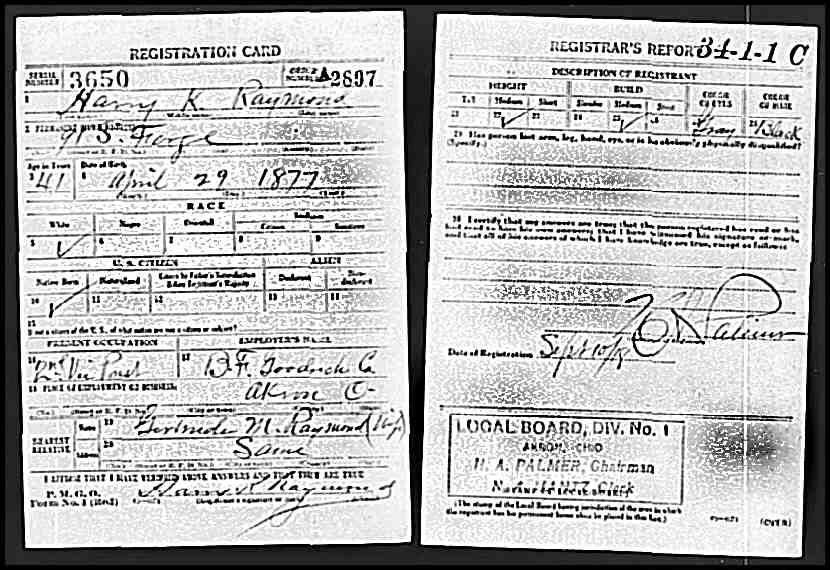 REGISTRATION CARD
SERIAL NUMBER 3650 ORDER NUMBER A2897
1 Harry K. Raymond
2 PERMANENT HOME ADDRESS
91 S. Forge
Age in Years Date of Birth
3 41 4 April 29 1877
RACE
White Negro Oriental Indian
Citizen Noncitizen
5 ✓ 6 7 8 9
U. S. CITIZEN ALIEN
Native Born Naturalized Citizen by Father's Naturalization Before Registrant's Majority Declarant Non-declarant
10 ✓ 11 12 13 14
15
If not a citizen of the U. S., of what nation are you a citizen or subject?
PRESENT OCCUPATION EMPLOYER'S NAME
16 2nd Vice Prest 17 B. F. Goodrich Co
18 PLACE OF EMPLOYMENT OR BUSINESS
Akron O-
(No.) (Street or R. F. D. No.) (City or town)
NEAREST RELATIVE Name 19 Gertrude M. Raymond (Wife)
Address 20 Same
I AFFIRM THAT I HAVE VERIFIED ABOVE ANSWERS AND THAT THEY ARE TRUE
P. M. G. O.
Form No. 1 (Red) Harry K Raymond
(Registrant's signature or mark)
REGISTRAR'S REPORT 34-1-1 C
DESCRIPTION OF REGISTRANT
HEIGHT BUILD COLOR OF EYES COLOR OF HAIR
Tall Medium Short Slender Medium Stout
21 22 ✓ 23 24 25 ✓ 26 27 Gray 28 Black
29 Has person lost arm, leg, hand, eye, or is he obviously physically disqualified?
(Specify.)
30 I certify that my answers are true; that the person registered has read or has
had read to him his own answers; that I have witnessed his signature or mark,
and that all of his answers of which I have knowledge are true, except as follows:
Palmer
Date of Registration Sept 10/18
LOCAL BOARD, DIV. No. 1
AKRON, OHIO
H. A. PALMER, Chairman
Clerk
(The stamp of the Local Board having jurisdiction of the area in which
the registrant has his permanent home shall be placed in this box.)
(OVER)